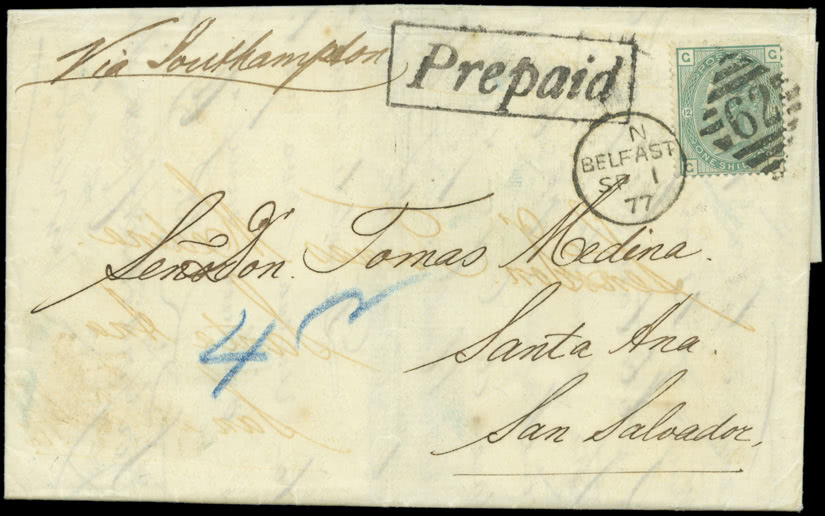 Via Southampton
Prepaid
G G
62
12
ONE SHIL
G
N
BELFAST
SP 1
77
Señor Don. Tomas Medina.
Santa Ana.
San Salvador,